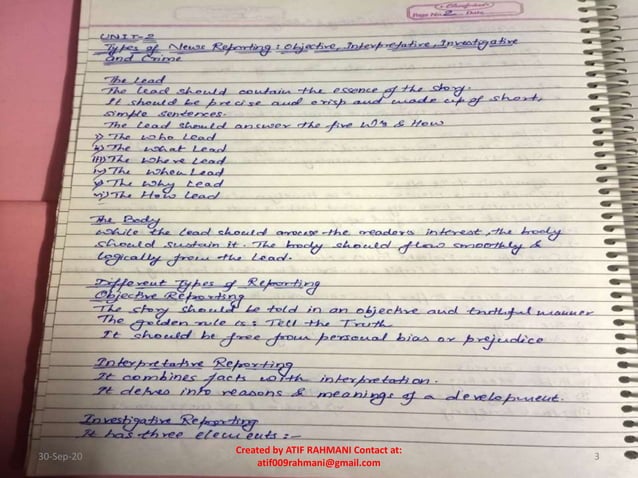 Page No. 2 Date
UNIT-2
Types of News Reporting: Objective, Interpretative, Investigative
and Crime
The Lead
The lead should contain the essence of the story.
It should be precise and crisp and made up of short,
simple sentences.
The lead should answer the five W's & How
i) The Who Lead
ii) The What Lead
iii) The Where Lead
iv) The When Lead
v) The Why Lead
vi) The How Lead
The Body
While the lead should arouse the readers interest, the body
should sustain it. The body should flow smoothly &
logically from the lead.
Different Types of Reporting
Objective Reporting
The story should be told in an objective and truthful manner
The golden rule is: Tell the Truth
It should be free from personal bias or prejudice
Interpretative Reporting
It combines facts with interpretation.
It delves into reasons & meanings of a development.
Investigative Reporting
It has three elements:-
30-Sep-20
Created by ATIF RAHMANI Contact at:
atif009rahmani@gmail.com
3